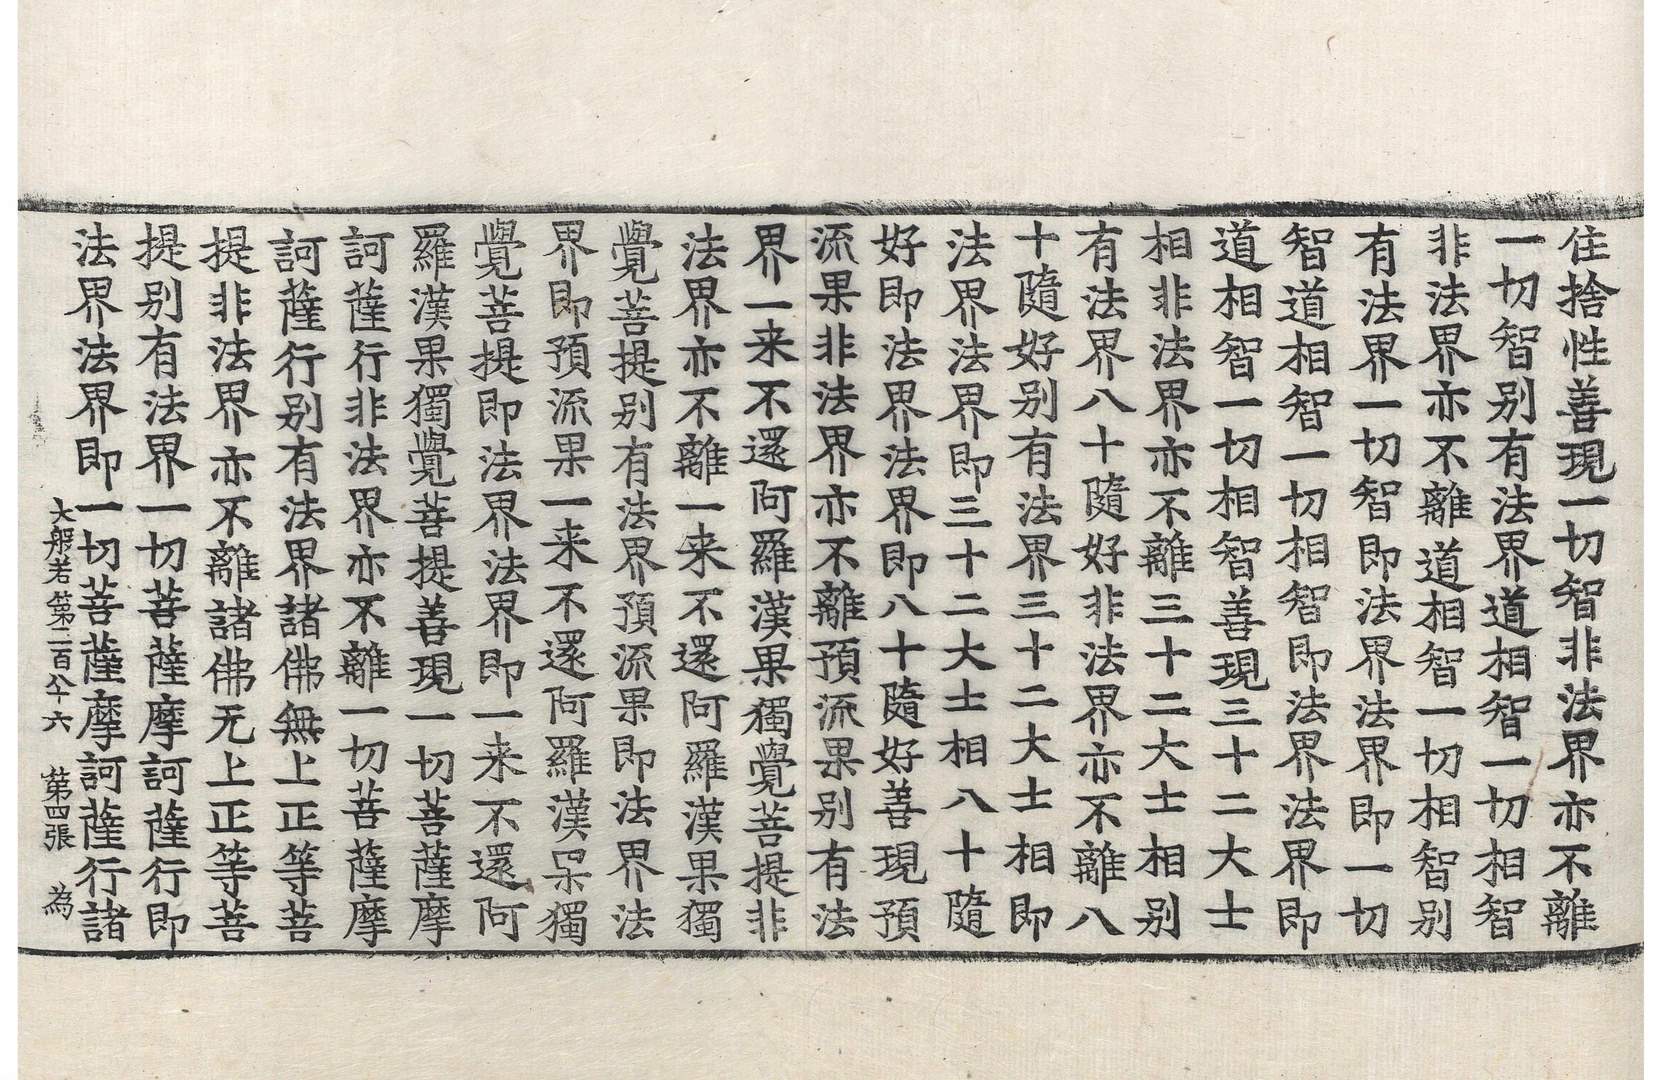 住捨性善現一切智非法界亦不離
一切智别有法界道相智一切相智
非法界亦不離道相智一切相智别
有法界一切智即法界法界即一切
智道相智一切相智即法界法界即
道相智一切相智善現三十二大士
相非法界亦不離三十二大士相别
有法界八十隨好非法界亦不離八
十隨好别有法界三十二大士相即
法界法界即三十二大士相八十隨
好即法界法界即八十隨好善現預
流果非法界亦不離預流果别有法
界一来不還阿羅漢果獨覺菩提非
法界亦不離一来不還阿羅漢果獨
覺菩提别有法界預流果即法界法
界即預流果一来不還阿羅漢果獨
覺菩提即法界法界即一来不還阿
羅漢果獨覺菩提善現一切菩薩摩
訶薩行非法界亦不離一切菩薩摩
訶薩行别有法界諸佛無上正等菩
提非法界亦不離諸佛无上正等菩
提别有法界一切菩薩摩訶薩行即
法界法界即一切菩薩摩訶薩行諸
大般若第三百八十六 第四張 為